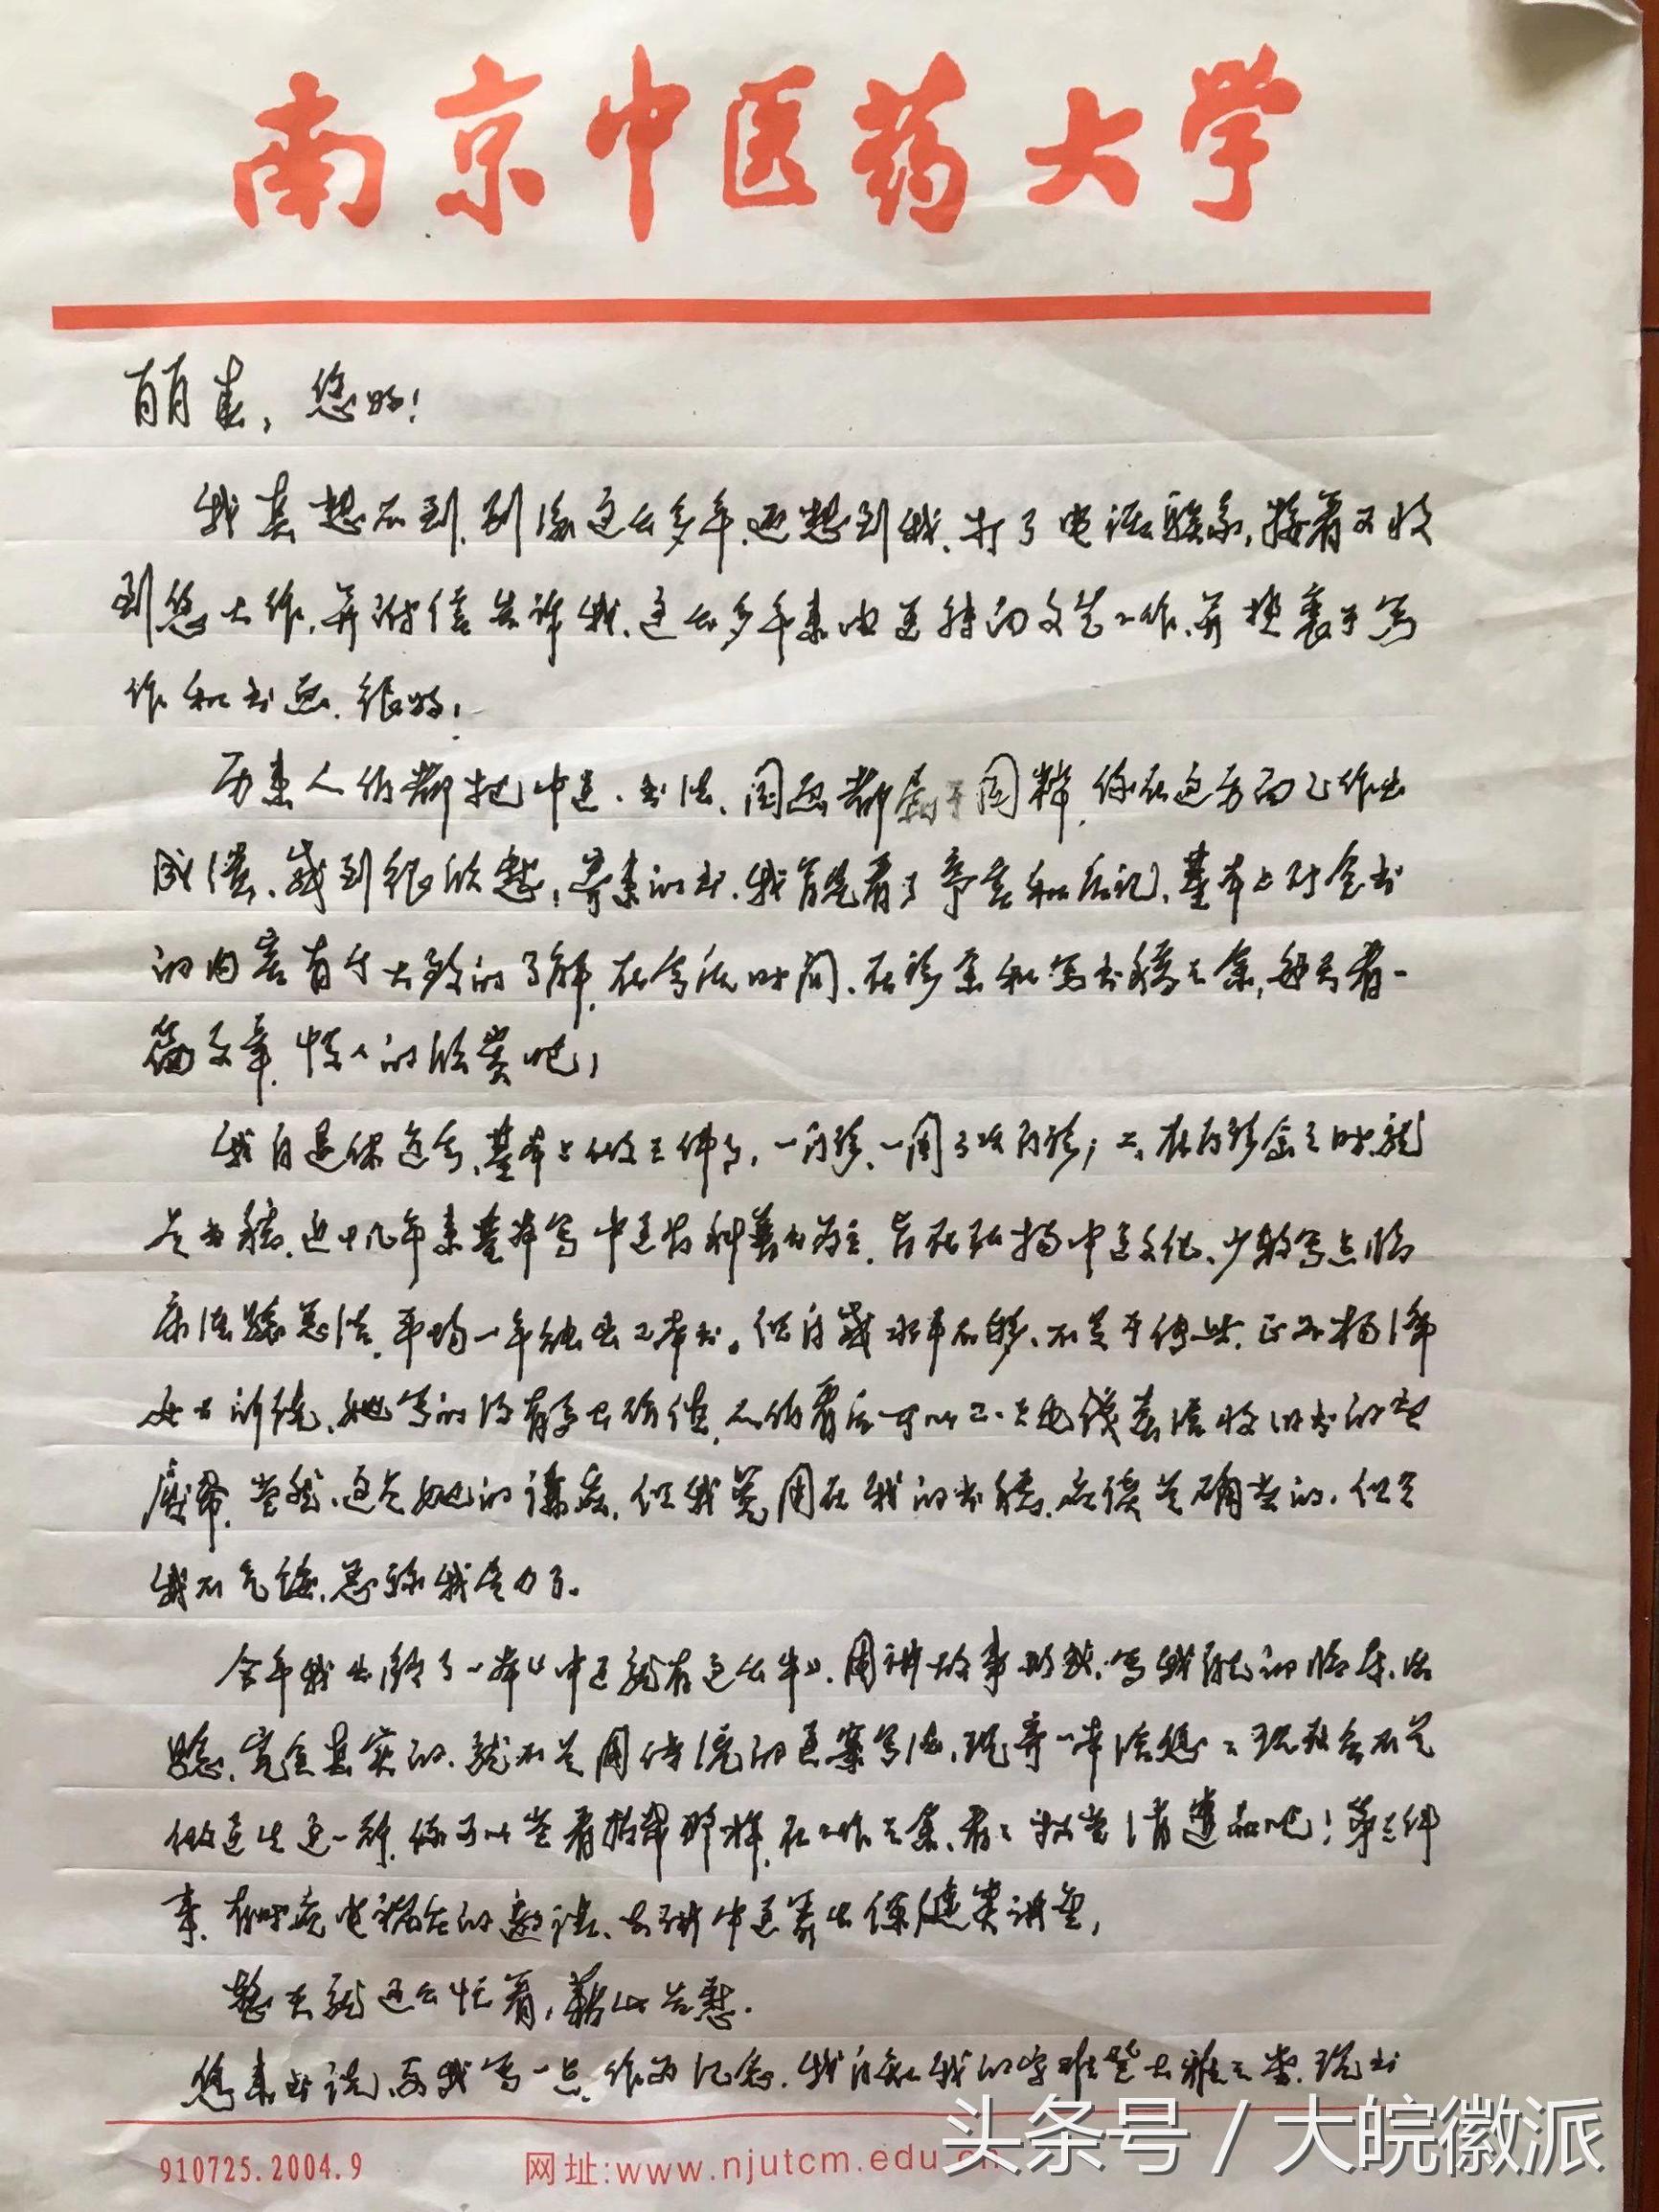 南京中医药大学
萌春，您好！
我真想不到，别后这么多年，还想到我，打了电话联系，接着又收
到您大作，并附信告诉我，这么多年来由医转向文艺工作，并热衷于写
作和书画，很好！
历来人们都把中医、书法、国画都属于国粹，你在这方面已作出
成绩，感到很欣慰，寄来的书，我首先看了序言和后记，基本上对全书
的内容有个大致的了解，在今后时间，在诊余和写书稿之余，每天看一
篇文章，惊人的欣赏吧！
我自退休迄今，基本上做三件事，一门诊，一周三次门诊；二、在门诊余之时，就
是书稿，近十几年来基本写中医药科普书为主，旨在弘扬中医文化，少数写点临
床经验总结，平均一年能出二本书。但自感水平不够，不足于传世，正如杨绛
女士所说，她写的没有多少价值，人们看后可以二、三毛钱卖给收旧书的
废品，当然，这是她的谦虚，但我若用在我的书稿，应该是确当的，但是
我不气馁，总算我尽力了。
今年我出版了一本《中医就有这么牛》，用讲故事形式，写我经历的临床经
验，完全真实的，就不是用传统的医案写法，现寄一本给您
做医生这一行，你可以当看故事那样，在工作之余，看看权当消遣品吧！第三件
事，有时应电视台的邀请，去讲中医养生保健类讲座，
整天就这么忙着，藉此告慰。
您来书说，要我写一点，作为纪念，我自知我的字难登大雅之堂，现书
910725.2004.9
网址:www.njutcm.edu.cn
头条号 / 大皖徽派